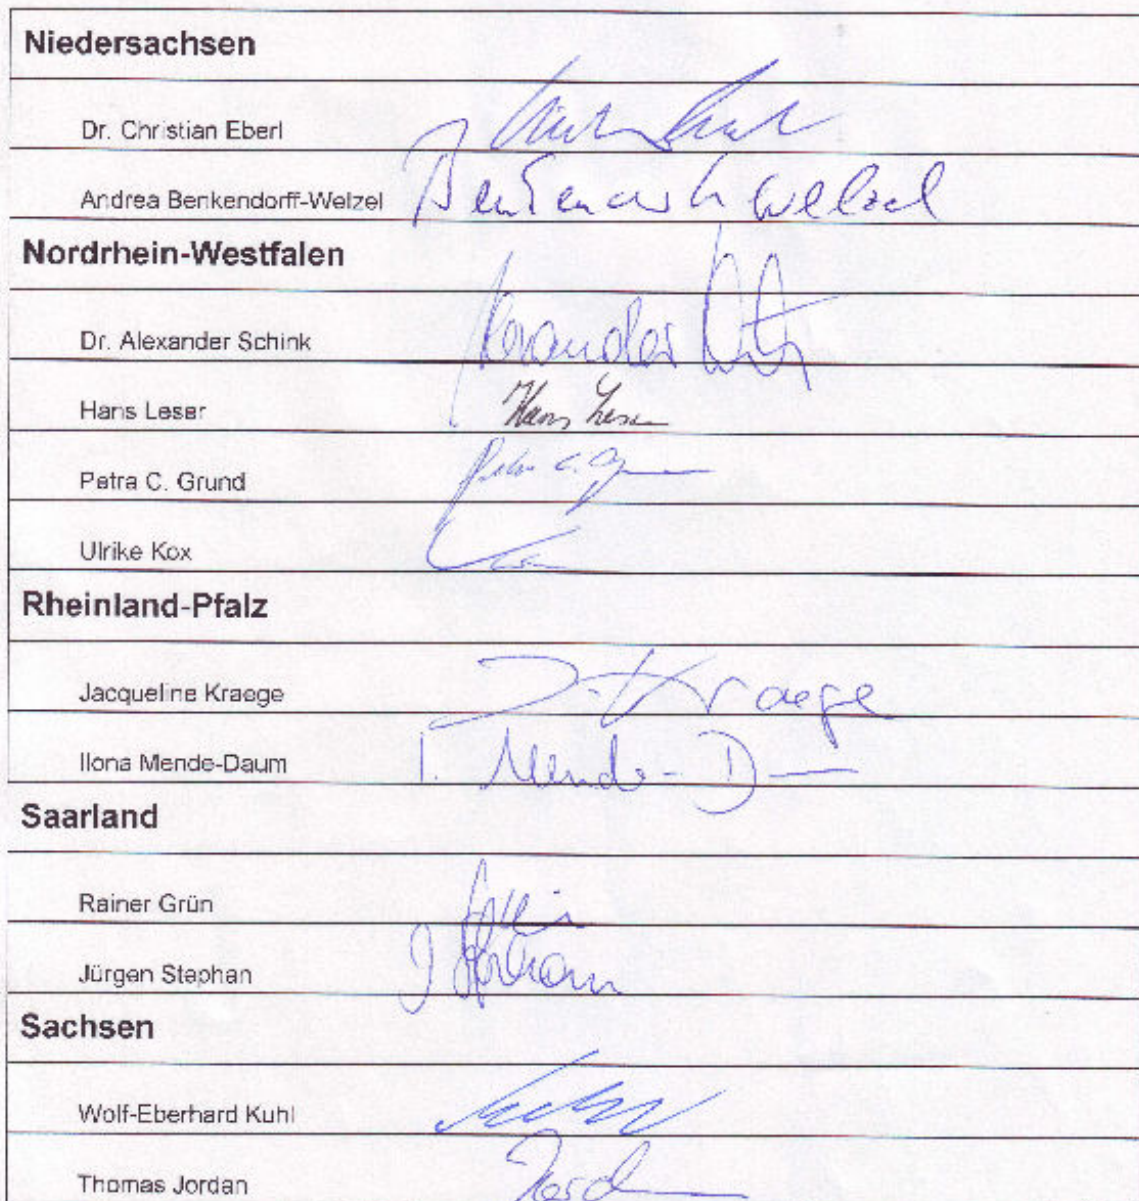 Niedersachsen
Dr. Christian Eberl
Andrea Benkendorff-Welzel Benkendorff-Welzel
Nordrhein-Westfalen
Dr. Alexander Schink Alexander
Hans Leser Hans Leser
Petra C. Grund Petra C. G
Ulrike Kox
Rheinland-Pfalz
Jacqueline Kraege J. Kraege
Ilona Mende-Daum I. Mende-D
Saarland
Rainer Grün
Jürgen Stephan J Stephan
Sachsen
Wolf-Eberhard Kuhl
Thomas Jordan Jord